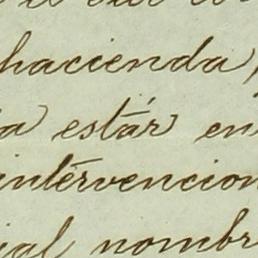 hacienda,
a estár en
intervencion
ial nombr